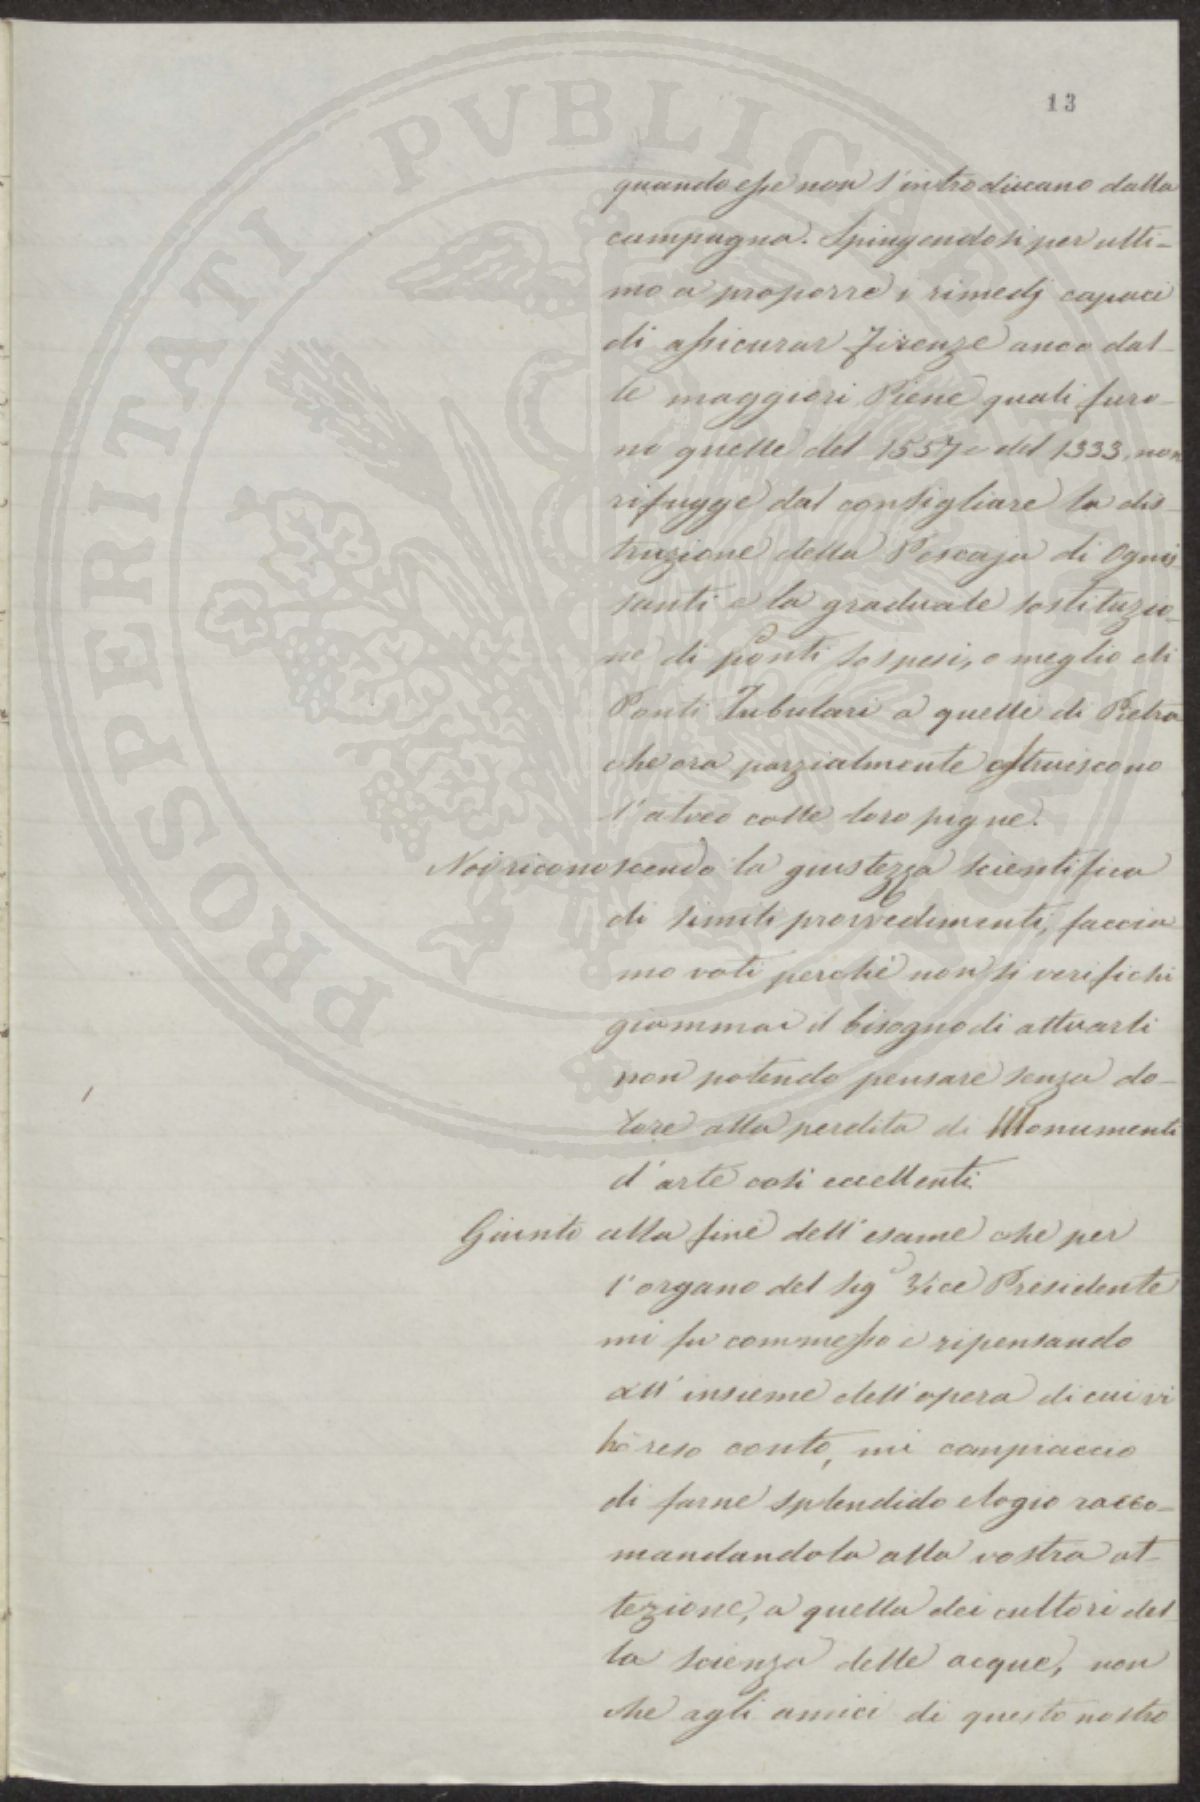 13
quando esse non s'introducano dalla
campagna. Spingendosi per ulti-
mo a proporre i rimedj capaci
di assicurar Firenze anco dal-
le maggiori Piene quali furo-
no quelle del 1557 e del 1333, non
rifugge dal consigliare la dis-
truzione della Pescaja di Ognis
santi e la graduale sostituzio-
ne di Ponti sospesi, o meglio di
Ponti Tubulari a quelli di Pietra
che ora parzialmente ostruiscono
l'alveo colle loro pigne.
Noi riconoscendo la giustezza scientifica
di simili provvedimenti, faccia
mo voti perché non si verifichi
giammai il bisogno di attuarli
non potendo pensare senza do-
lore alla perdita di Monumenti
d'arte così eccellenti.
Giunto alla fine dell'esame che per
l'organo del Sigr Vice Presidente
mi fu commesso e ripensando
all'insieme dell'opera di cui vi
hò reso conto, mi compiaccio
di farne splendido elogio racco-
mandandola alla vostra at-
tezione, a quella dei cultori del
la scienza delle acque, non
che agli amici di questo nostro
PROSPERITATI PVBLICAE